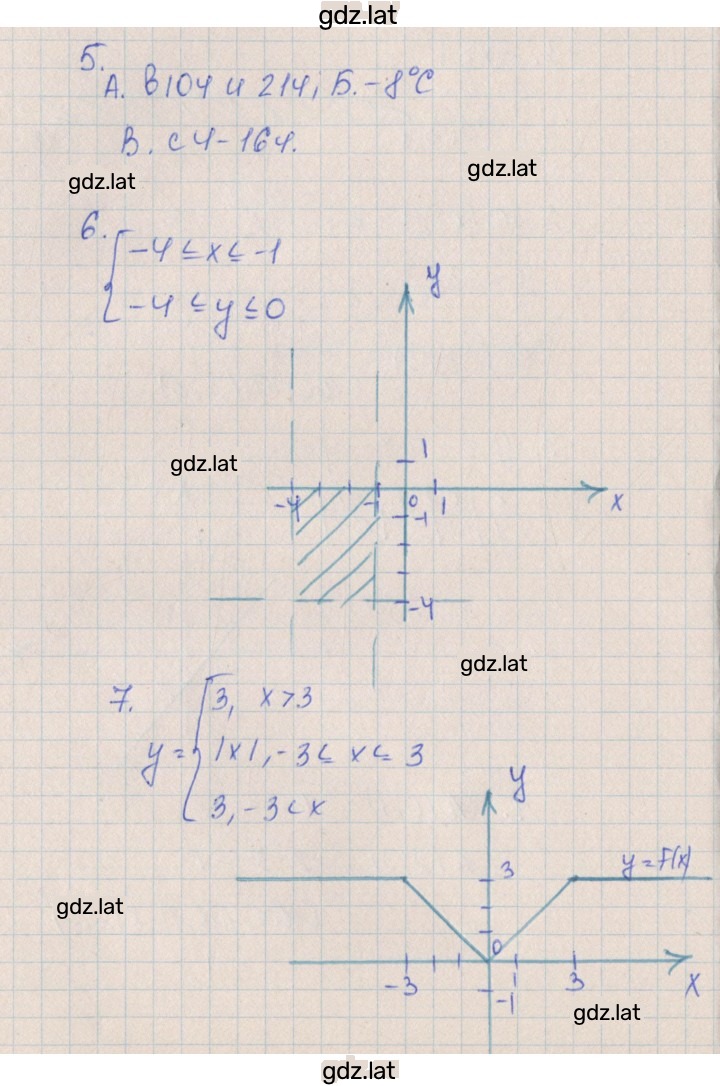 gdz.lat
5.
А. в 10ч и 21ч; Б. -8°C
В. с 4-16ч.
gdz.lat
gdz.lat
6.
{ -4 ≤ x ≤ -1
-4 ≤ y ≤ 0
y
1
gdz.lat
-4 -1 0 1 x
-1
-4
gdz.lat
7.
3, x > 3
y = { |x|, -3 ≤ x ≤ 3
3, -3 < x
y
3
y = F(x)
gdz.lat
0
-3 1 3 x
-1
gdz.lat
gdz.lat